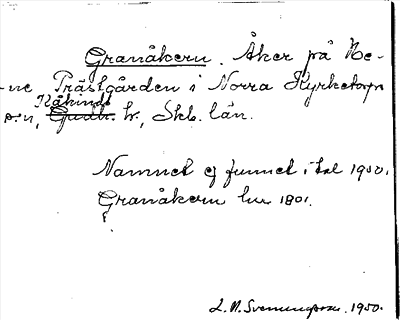 Granåkern. Åker på He-
ne Prästgården i Norra Kyrketorp
Kåkinds
s:n, Gudh. h., Skb. län.
Namnet ej funnet i tal 1950.
Granåkern hm 1801.
L. M. Svenungsson. 1950.